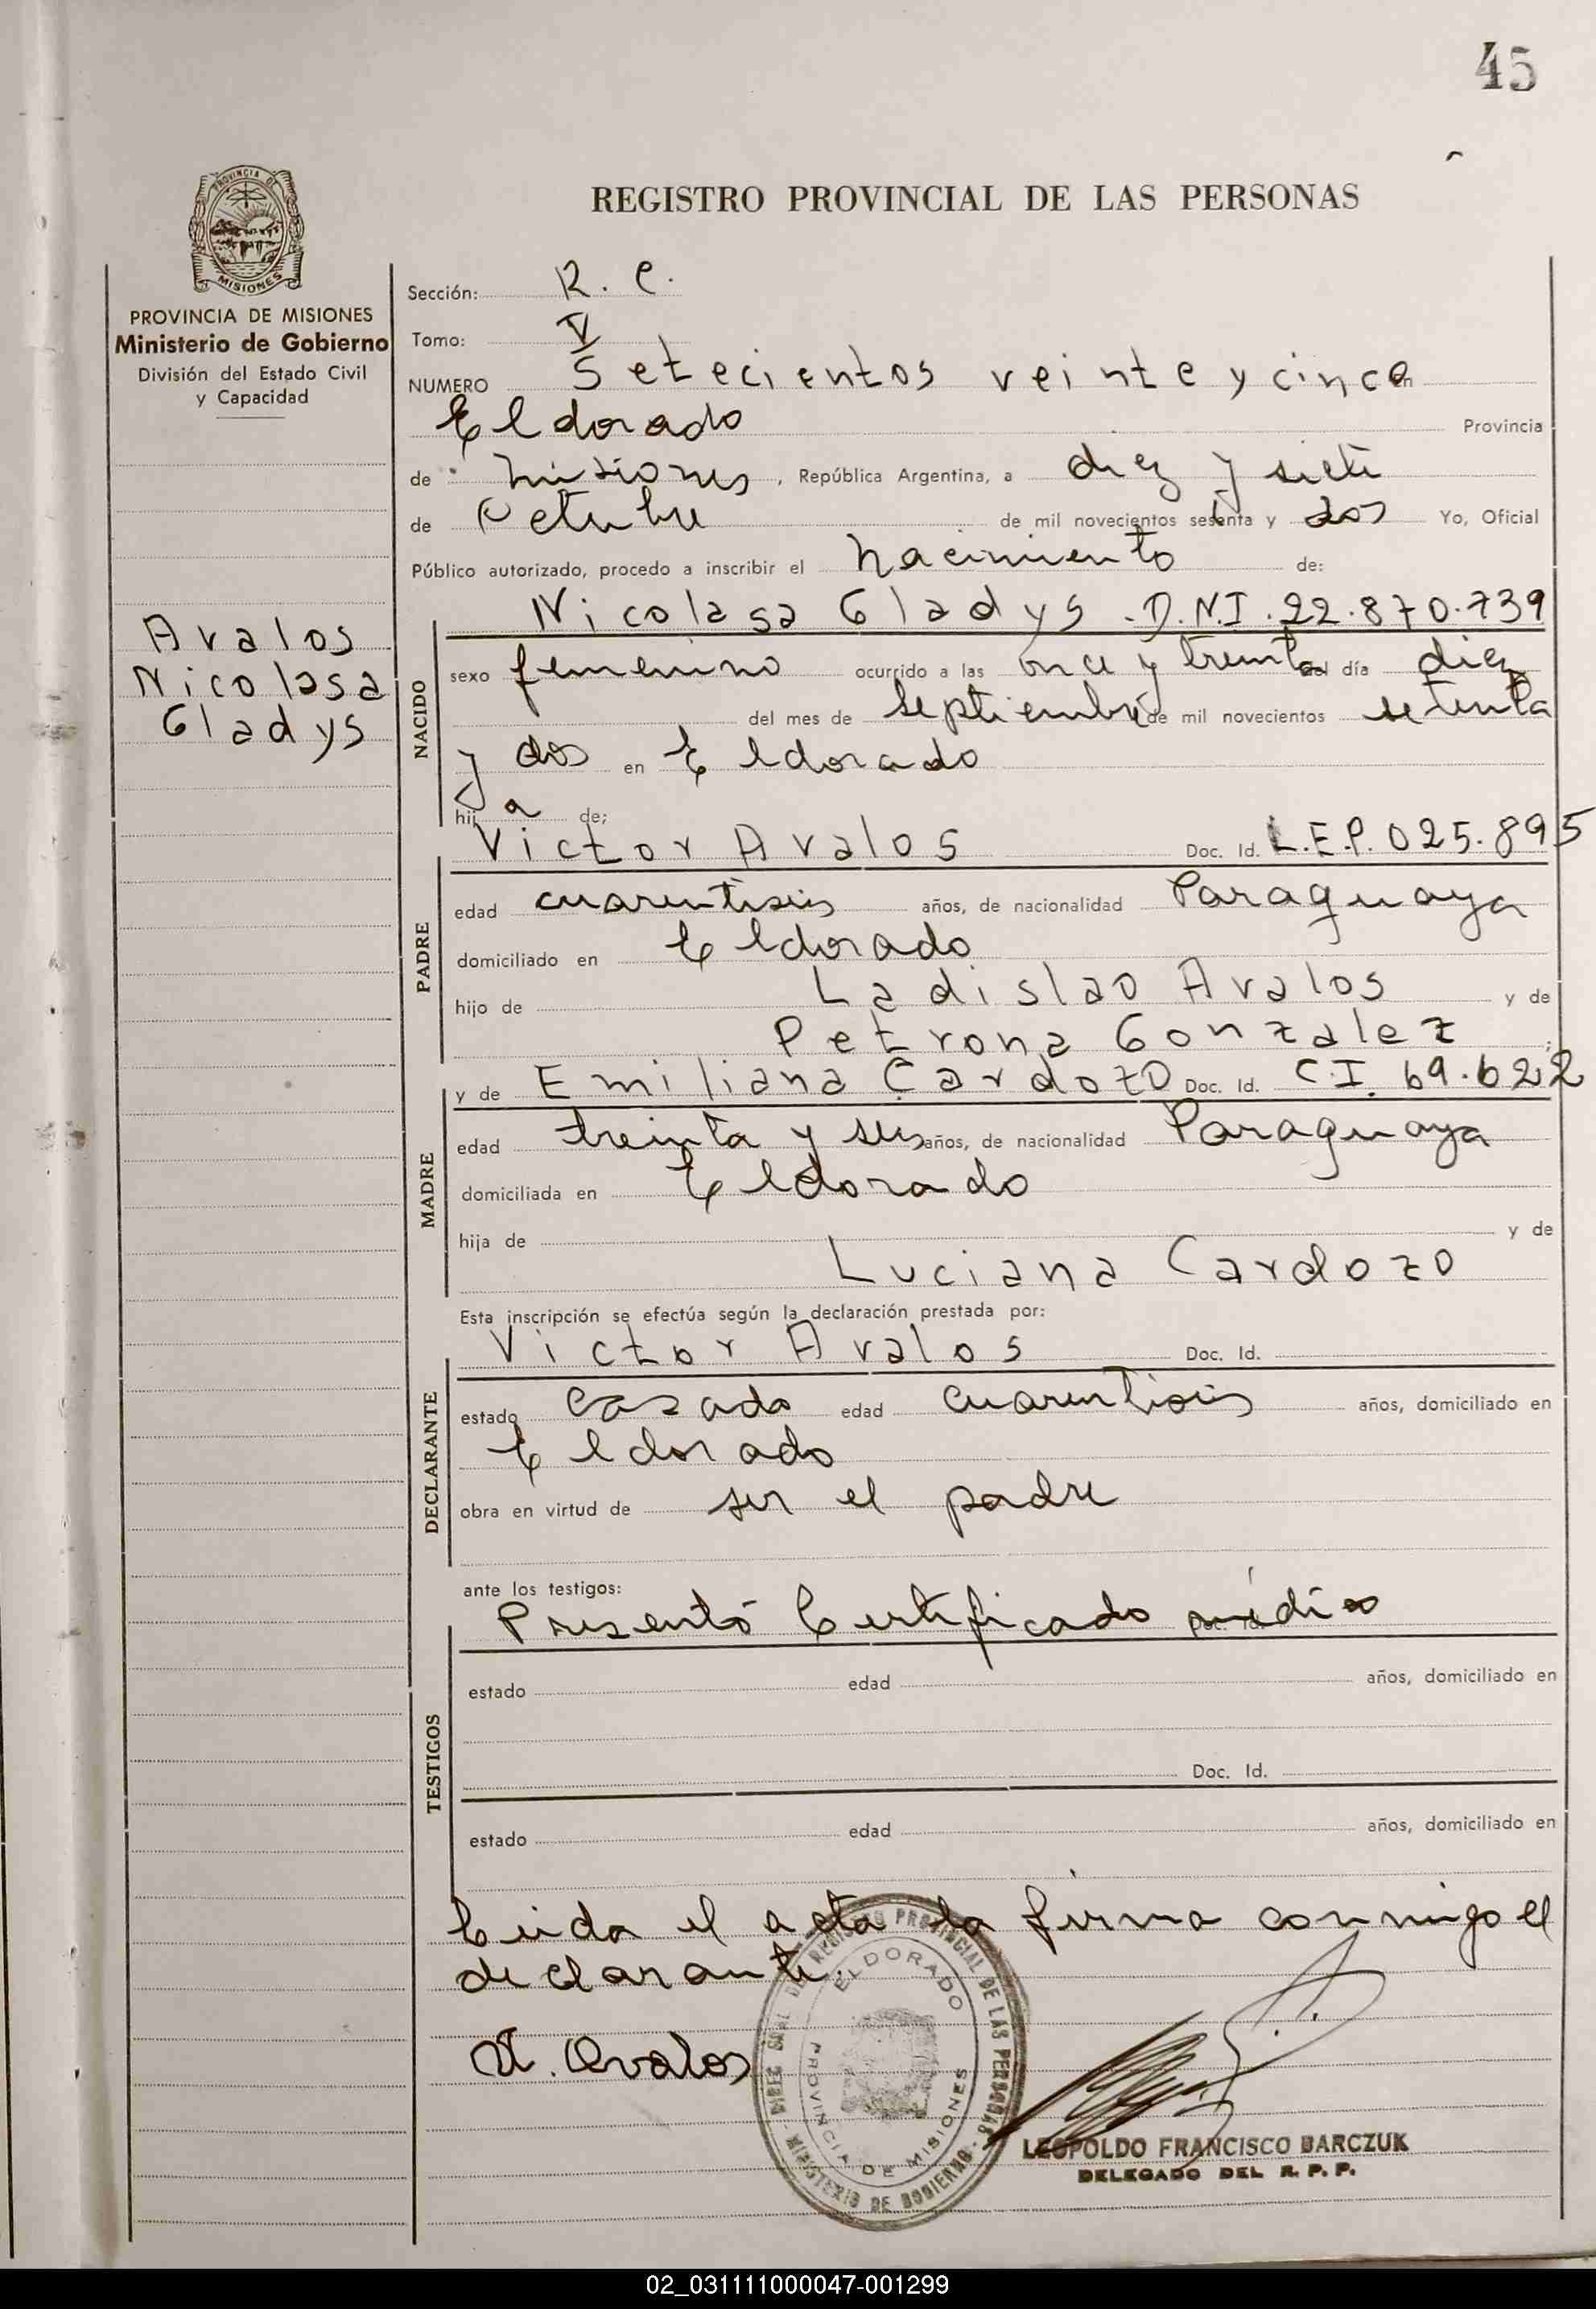 45
REGISTRO PROVINCIAL DE LAS PERSONAS
PROVINCIA DE
MISIONES
PROVINCIA DE MISIONES
Ministerio de Gobierno
División del Estado Civil
y Capacidad
Avalos
Nicolasa
Gladys
Sección: R. C.
Tomo: V
NUMERO Setecientos veinte y cinco en
Eldorado Provincia
de Misiones, República Argentina, a diez y siete
de Octubre de mil novecientos setenta y dos Yo, Oficial
Público autorizado, procedo a inscribir el nacimiento de:
NACIDO
Nicolasa Gladys .D.N.I.22.870.739
sexo femenino ocurrido a las once y treinta del día diez
del mes de septiembre de mil novecientos setenta
y dos en Eldorado
hija de:
PADRE
Victor Avalos Doc. Id. L.E.P. 025.895
edad cuarentiseis años, de nacionalidad Paraguaya
domiciliado en Eldorado
hijo de Ladislao Avalos y de
Petrona Gonzalez ;
MADRE
y de Emiliana Cardozo Doc. Id. C.I. 69.622
edad treinta y seis años, de nacionalidad Paraguaya
domiciliada en Eldorado
hija de y de
Luciana Cardozo
Esta inscripción se efectúa según la declaración prestada por:
DECLARANTE
Victor Avalos Doc. Id.
estado casado edad cuarentiseis años, domiciliado en
Eldorado
obra en virtud de ser el padre
ante los testigos:
TESTIGOS
Presentó Certificado médico Doc. Id.
estado edad años, domiciliado en
Doc. Id.
estado edad años, domiciliado en
Leida el acta la firma conmigo el
declarante.
V. Avalos
REGISTRO PROVINCIAL DE LAS PERSONAS - MINISTERIO DE GOBIERNO
ELDORADO
PROVINCIA DE MISIONES
LEOPOLDO FRANCISCO BARCZUK
DELEGADO DEL R. P. P.
02_031111000047-001299